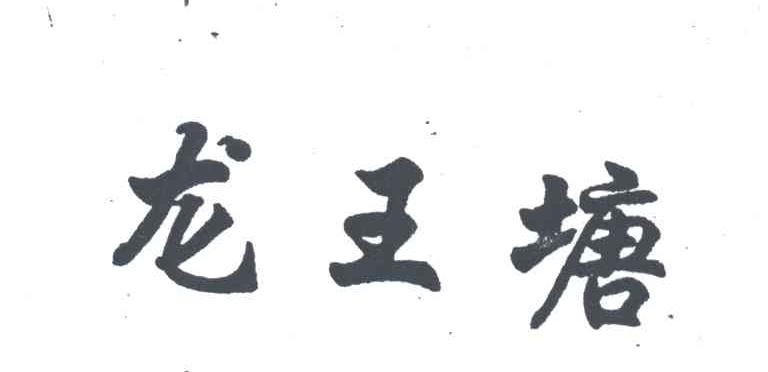 龙王塘